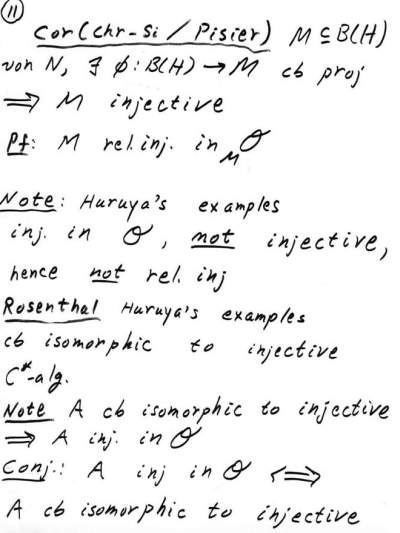 11
Cor(Chr-Si / Pisier) M ⊆ B(H)
von N, ∃ ϕ: B(H) → M cb proj
⟹ M injective
Pf: M rel. inj. in _M𝒪
Note: Huruya's examples
inj. in 𝒪, not injective,
hence not rel. inj
Rosenthal Huruya's examples
cb isomorphic to injective
C*-alg.
Note A cb isomorphic to injective
⟹ A inj. in 𝒪
Conj.: A inj in 𝒪 ⟺
A cb isomorphic to injective